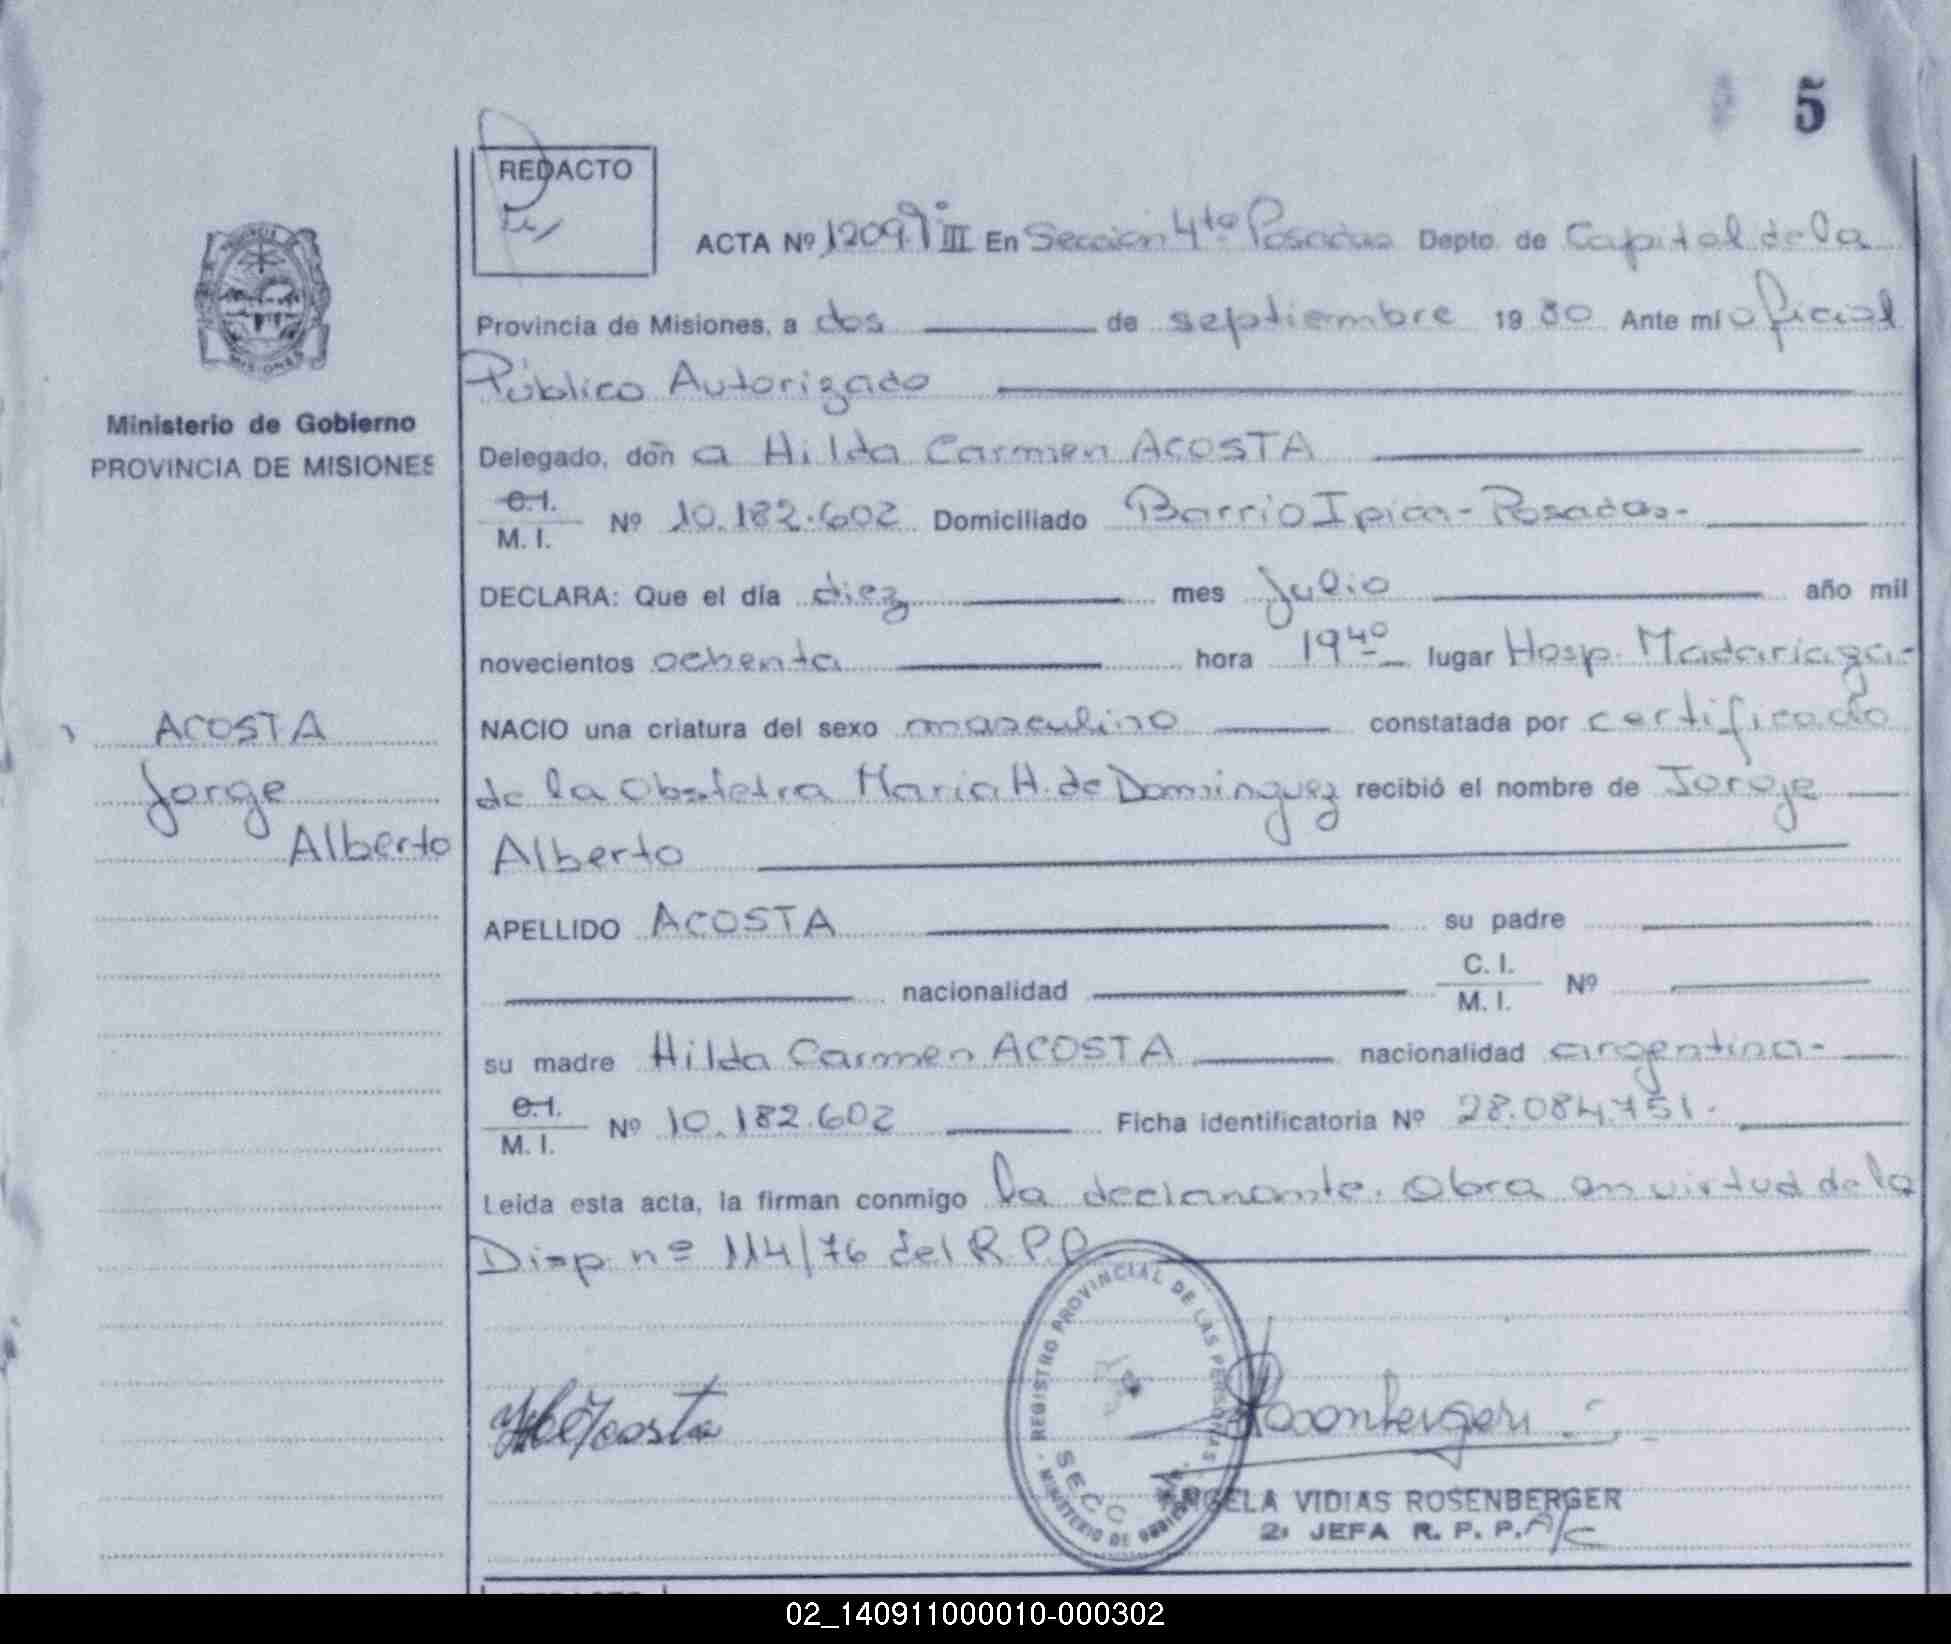 5
REDACTO
ACTA Nº 1209 Tº III En Sección 4ta Posadas Depto. de Capital de la
Provincia de Misiones, a dos de septiembre 19 80 Ante mí oficial
Público Autorizado
Ministerio de Gobierno
PROVINCIA DE MISIONES
Delegado, doñ a Hilda Carmen ACOSTA
C.I.
M. I. Nº 10.182.602 Domiciliado Barrio Ipica - Posadas -
DECLARA: Que el día diez mes Julio año mil
novecientos ochenta hora 19 40 lugar Hosp. Madariaga -
ACOSTA
Jorge
Alberto
NACIO una criatura del sexo masculino constatada por certificado
de la Obstetra María H. de Dominguez recibió el nombre de Jorge
Alberto
APELLIDO ACOSTA su padre
nacionalidad C. I.
M. I. Nº
su madre Hilda Carmen ACOSTA nacionalidad argentina -
C.I.
M. I. Nº 10.182.602 Ficha identificatoria Nº 28.084.751.
Leída esta acta, la firman conmigo la declarante. Obra en virtud de la
Disp. nº 114/76 del R.P.P.
REGISTRO PROVINCIAL DE LAS PERSONAS
MINISTERIO DE GOBIERNO
SECC
H C Acosta
Rosenberger
ANGELA VIDIAS ROSENBERGER
2ª JEFA R. P. P. A/C
02_140911000010-000302